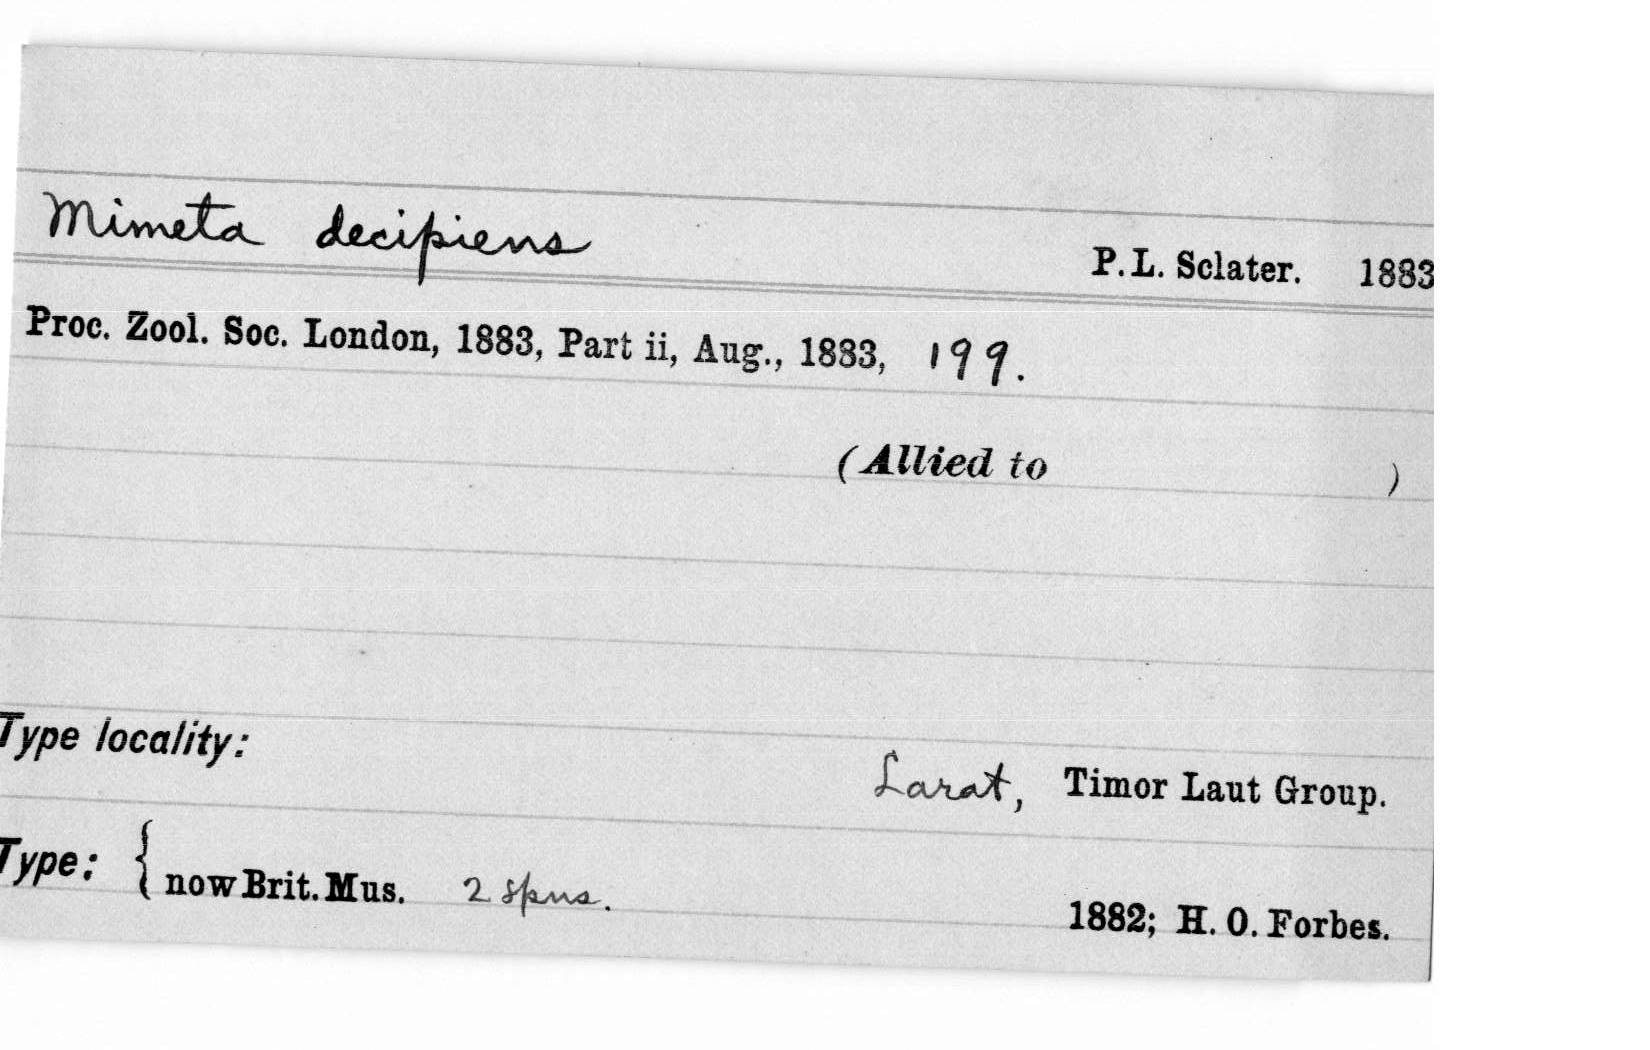 Mimeta decipiens P. L. Sclater. 1883
Proc. Zool. Soc. London, 1883, Part ii, Aug., 1883, 199.
(Allied to )
Type locality:
Larat, Timor Laut Group.
Type: { now Brit. Mus. 2 spns.
1882; H. O. Forbes.